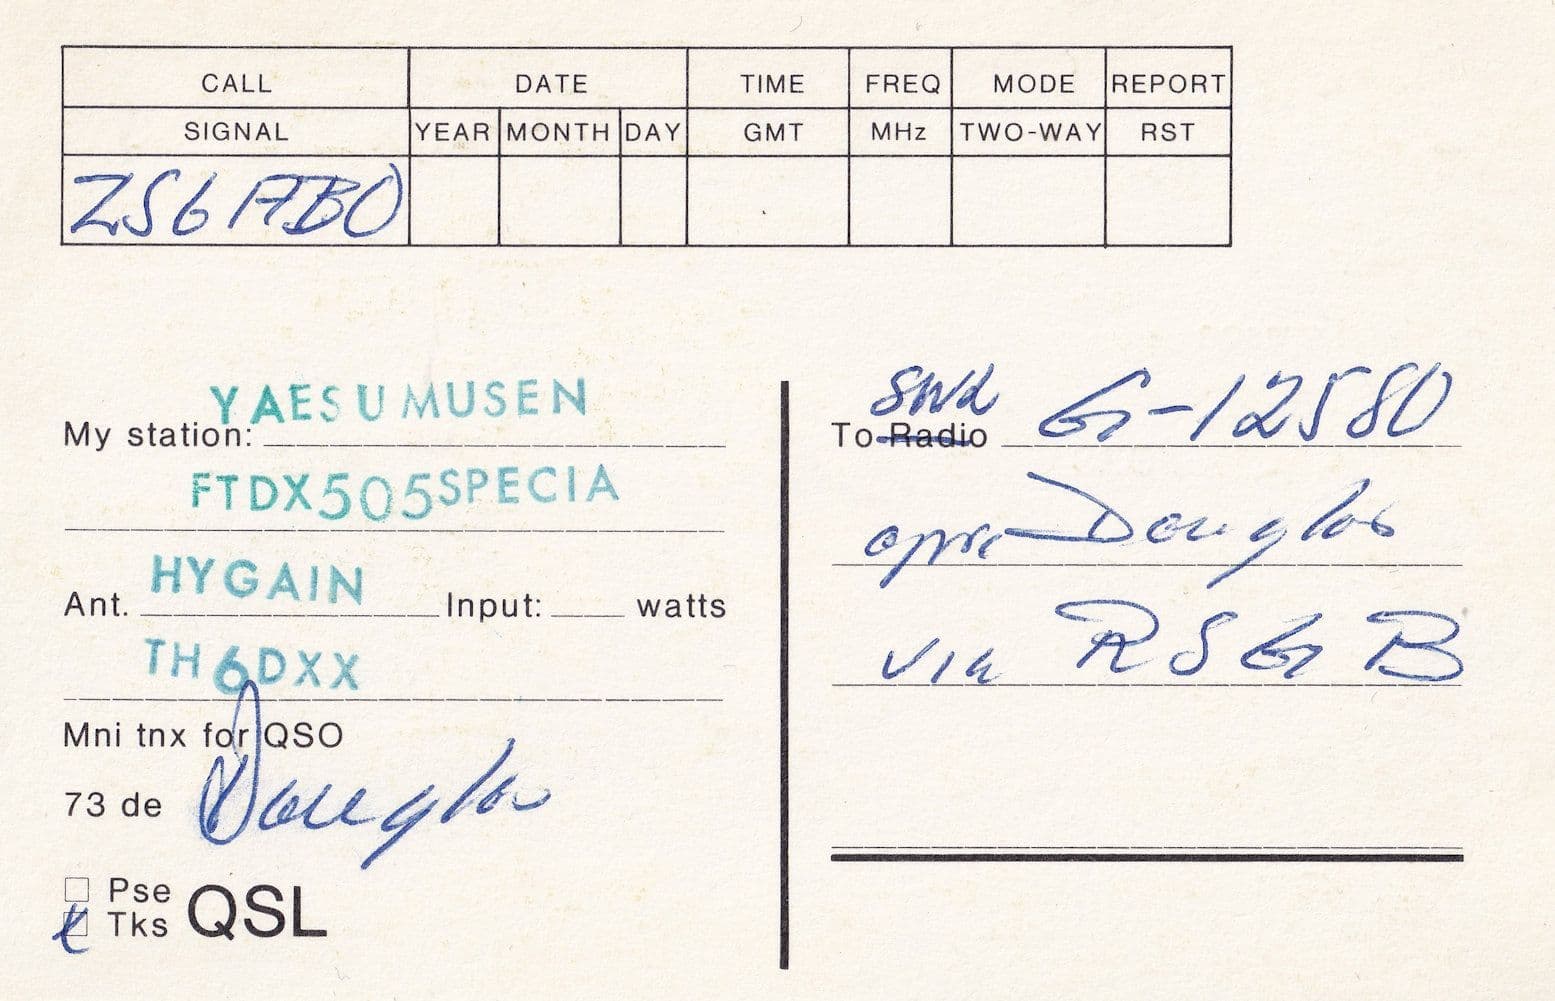 CALL DATE TIME FREQ MODE REPORT
SIGNAL YEAR MONTH DAY GMT MHz TWO-WAY RST
ZS6ABO
YAESU MUSEN
My station:
FTDX505SPECIA
HYGAIN
Ant. Input: watts
TH6DXX
Mni tnx for QSO
73 de Douglas
Pse
Tks QSL
SWL
To Radio G-12580
Douglas
via RSGB